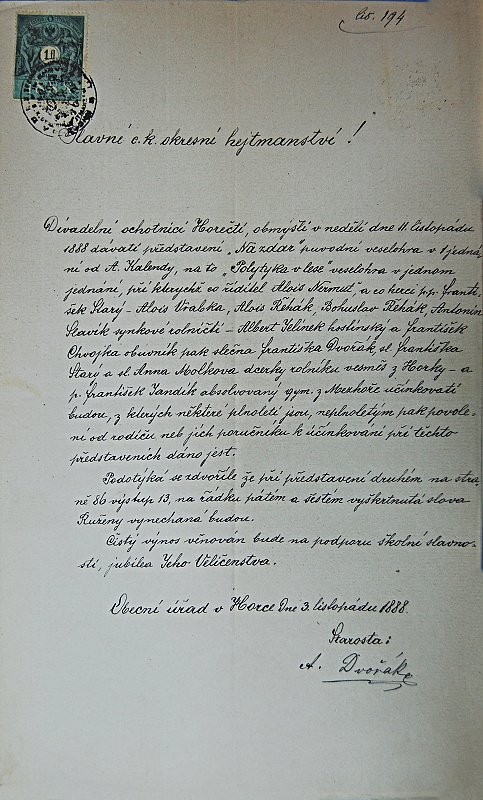 čís. 194
10
Slavné c.k. okresní hejtmanství!
Divadelní ochotníci Horečtí, obmýslí v neděli dne 11. listopadu
1888 dávati představení „Na zdar" původní veselohra v 1 jedná-
ní od A. Kalendy, na to „Polytyka v lese" veselohra v jednom
jednání, při kterých co řiditel Alois Nermut, a co herci p.p. Franti-
šek Starý – Alois Vrabka, Alois Řehák, Bohuslav Řehák, Antonín
Slavík synkové rolničtí – Albert Jelínek hostinský a František
Chvojka obuvník pak slečna Františka Dvořák, sl. Františka
Starý a sl. Anna Molíkova dcerky rolníku vesměs z Horky – a
p. František Jandík absolvovaný gym. z Merhoře účinkovati
budou, z kterých některé plnoletí jsou, neplnoletým pak povole-
ní od rodiču neb jich poručníku k účinkování při těchto
představeních dáno jest.
Podotýká se zdvořile že při představení druhém na stra-
ně 86 výstup 13, na řádku pátém a šestém vyškrtnutá slova
Ruženy vynechaná budou.
Čistý výnos věnován bude na podporu školní slavno-
sti, jubilea Jeho Veličenstva.
Obecní úřad v Horce Dne 3. listopadu 1888.
Starosta:
A. Dvořák